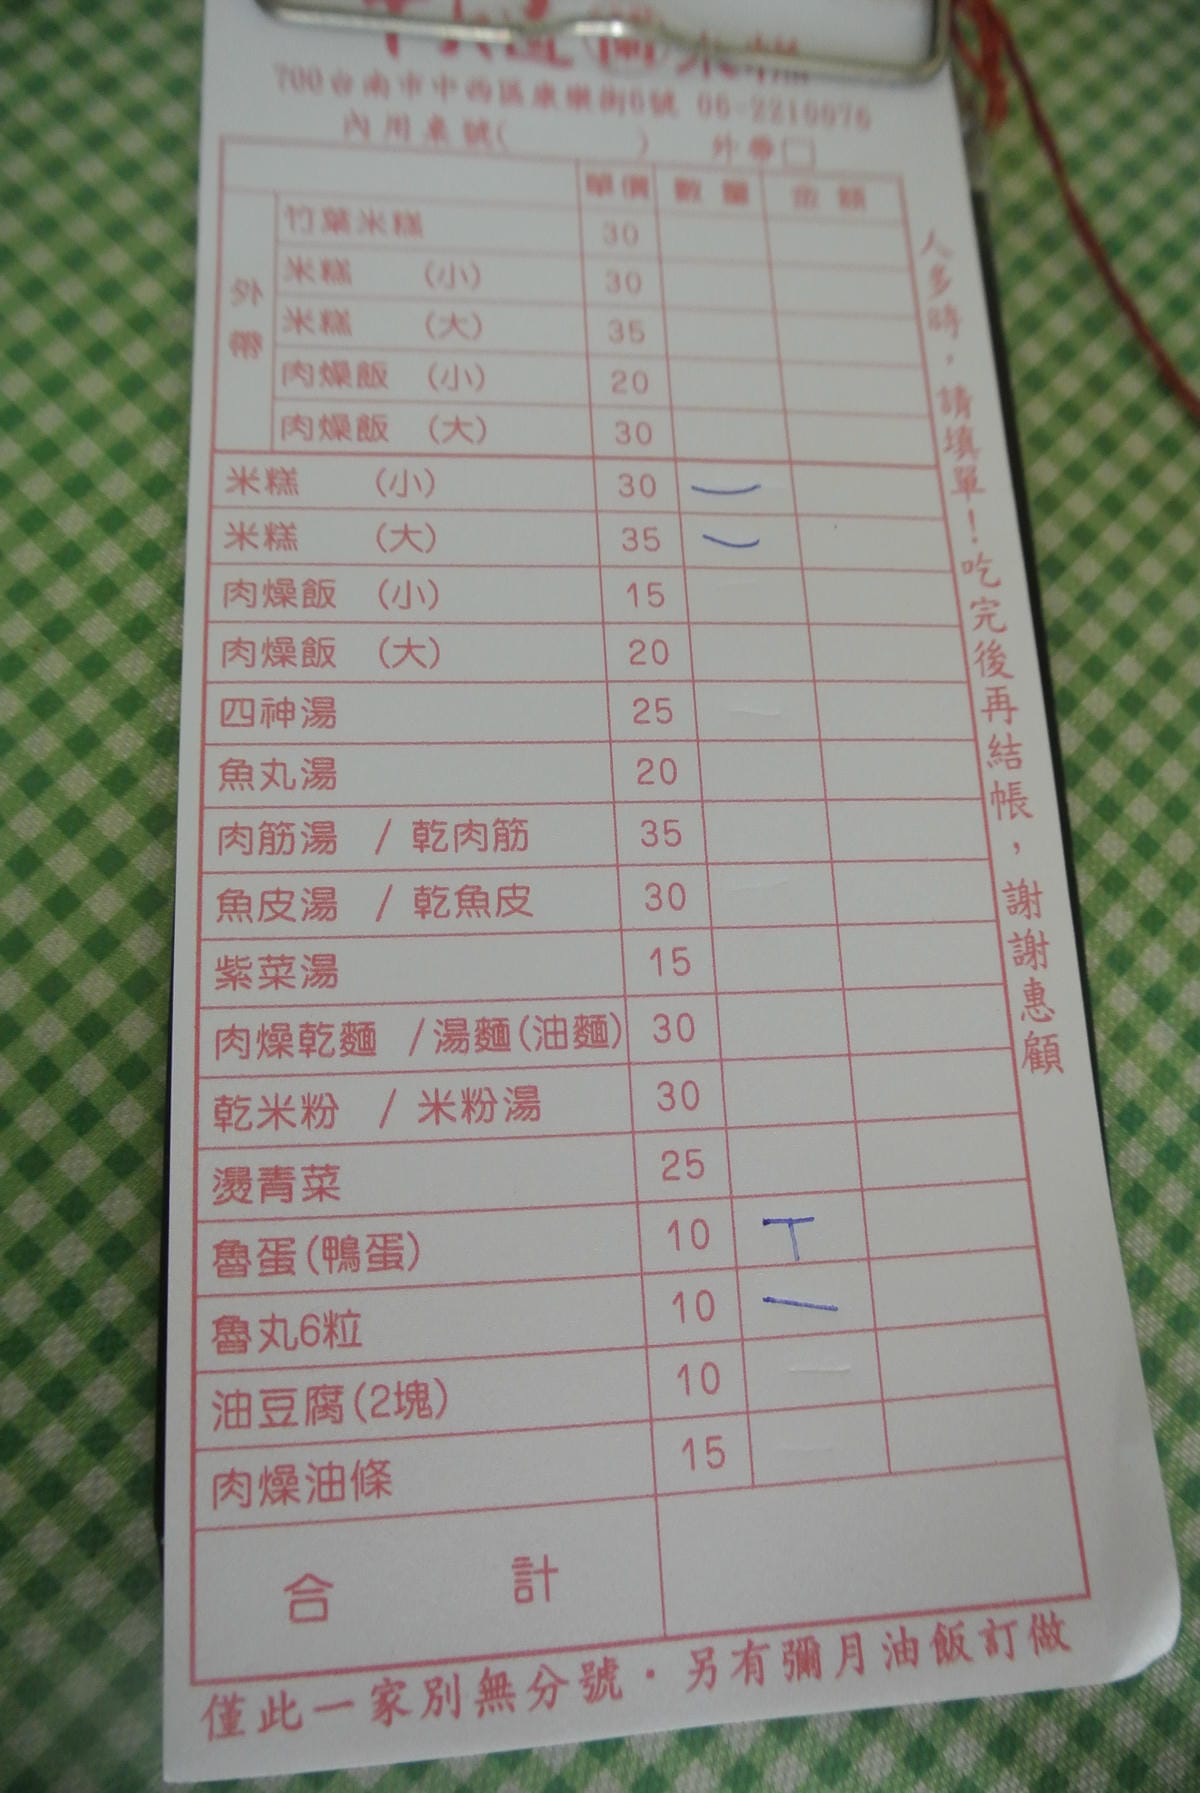 700台南市中西區康樂街6號 06-2210076
內用桌號( ) 外帶□
單價 數量 金額
外帶
竹葉米糕 30
米糕 (小) 30
米糕 (大) 35
肉燥飯 (小) 20
肉燥飯 (大) 30
米糕 (小) 30 一
米糕 (大) 35 一
肉燥飯 (小) 15
肉燥飯 (大) 20
四神湯 25
魚丸湯 20
肉筋湯 / 乾肉筋 35
魚皮湯 / 乾魚皮 30
紫菜湯 15
肉燥乾麵 /湯麵(油麵) 30
乾米粉 / 米粉湯 30
燙青菜 25
魯蛋(鴨蛋) 10 T
魯丸6粒 10 一
油豆腐(2塊) 10
肉燥油條 15
合計
人多時，請填單！吃完後再結帳，謝謝惠顧
僅此一家別無分號·另有彌月油飯訂做